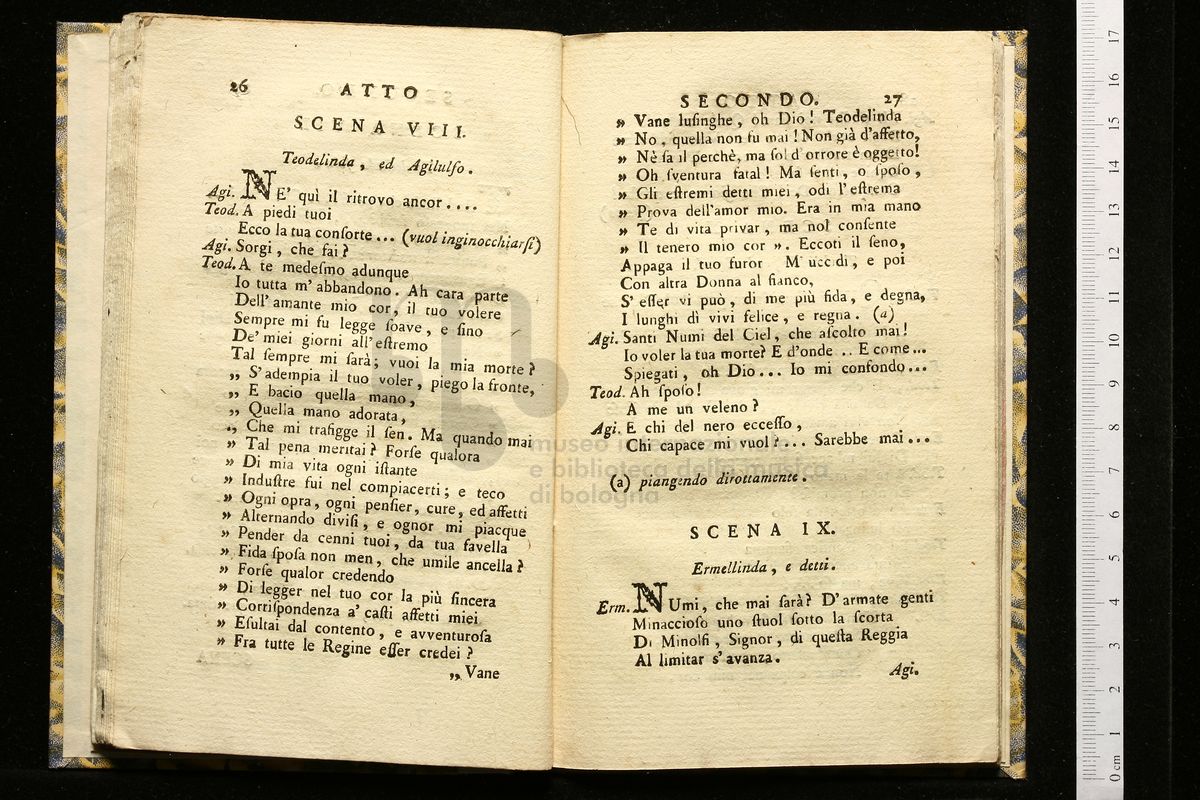 26 ATTO
SCENA VIII.
Teodelinda, ed Agilulfo.
Agi. NE' quì il ritrovo ancor....
Teod. A piedi tuoi
Ecco la tua conſorte... (vuol inginocchiarſi)
Agi. Sorgi, che fai?
Teod. A te medeſmo adunque
Io tutta m'abbandono. Ah cara parte
Dell'amante mio cor, il tuo volere
Sempre mi fu legge ſoave, e ſino
De' miei giorni all'eſtremo
Tal ſempre mi ſarà; vuoi la mia morte?
„ S'adempia il tuo voler, piego la fronte,
„ E bacio quella mano,
„ Quella mano adorata,
„ Che mi trafigge il ſen. Ma quando mai
„ Tal pena meritai? Forſe qualora
„ Di mia vita ogni iſtante
„ Induſtre fui nel compiacerti; e teco
„ Ogni opra, ogni penſier, cure, ed affetti
„ Alternando diviſi, e ognor mi piacque
„ Pender da cenni tuoi, da tua favella
„ Fida ſpoſa non men, che umile ancella?
„ Forſe qualor credendo
„ Di legger nel tuo cor la più ſincera
„ Corriſpondenza a' caſti affetti miei
„ Eſultai dal contento, e avventuroſa
„ Fra tutte le Regine eſſer credei?
„ Vane
SECONDO. 27
„ Vane luſinghe, oh Dio! Teodelinda
„ No, quella non fu mai! Non già d'affetto,
„ Nè ſa il perchè, ma ſol d'orrore è oggetto!
„ Oh ſventura fatal! Ma ſenti, o ſpoſo,
„ Gli eſtremi detti miei, odi l'eſtrema
„ Prova dell'amor mio. Era in mia mano
„ Te di vita privar, ma nol conſente
„ Il tenero mio cor „. Eccoti il ſeno,
Appaga il tuo furor M'uccidi, e poi
Con altra Donna al fianco,
S'eſſer vi può, di me più fida, e degna,
I lunghi dì vivi felice, e regna. (a)
Agi. Santi Numi del Ciel, che aſcolto mai!
Io voler la tua morte? E d'onde .. E come...
Spiegati, oh Dio... Io mi confondo...
Teod. Ah ſpoſo!
A me un veleno?
Agi. E chi del nero ecceſſo,
Chi capace mi vuol?... Sarebbe mai...
(a) piangendo dirottamente.
SCENA IX.
Ermellinda, e detti.
Erm. NUmi, che mai ſarà? D'armate genti
Minaccioſo uno ſtuol ſotto la ſcorta
Di Minolfi, Signor, di queſta Reggia
Al limitar s'avanza.
Agi.
museo internazionale
e biblioteca della musica
di bologna
0 cm 1 2 3 4 5 6 7 8 9 10 11 12 13 14 15 16 17